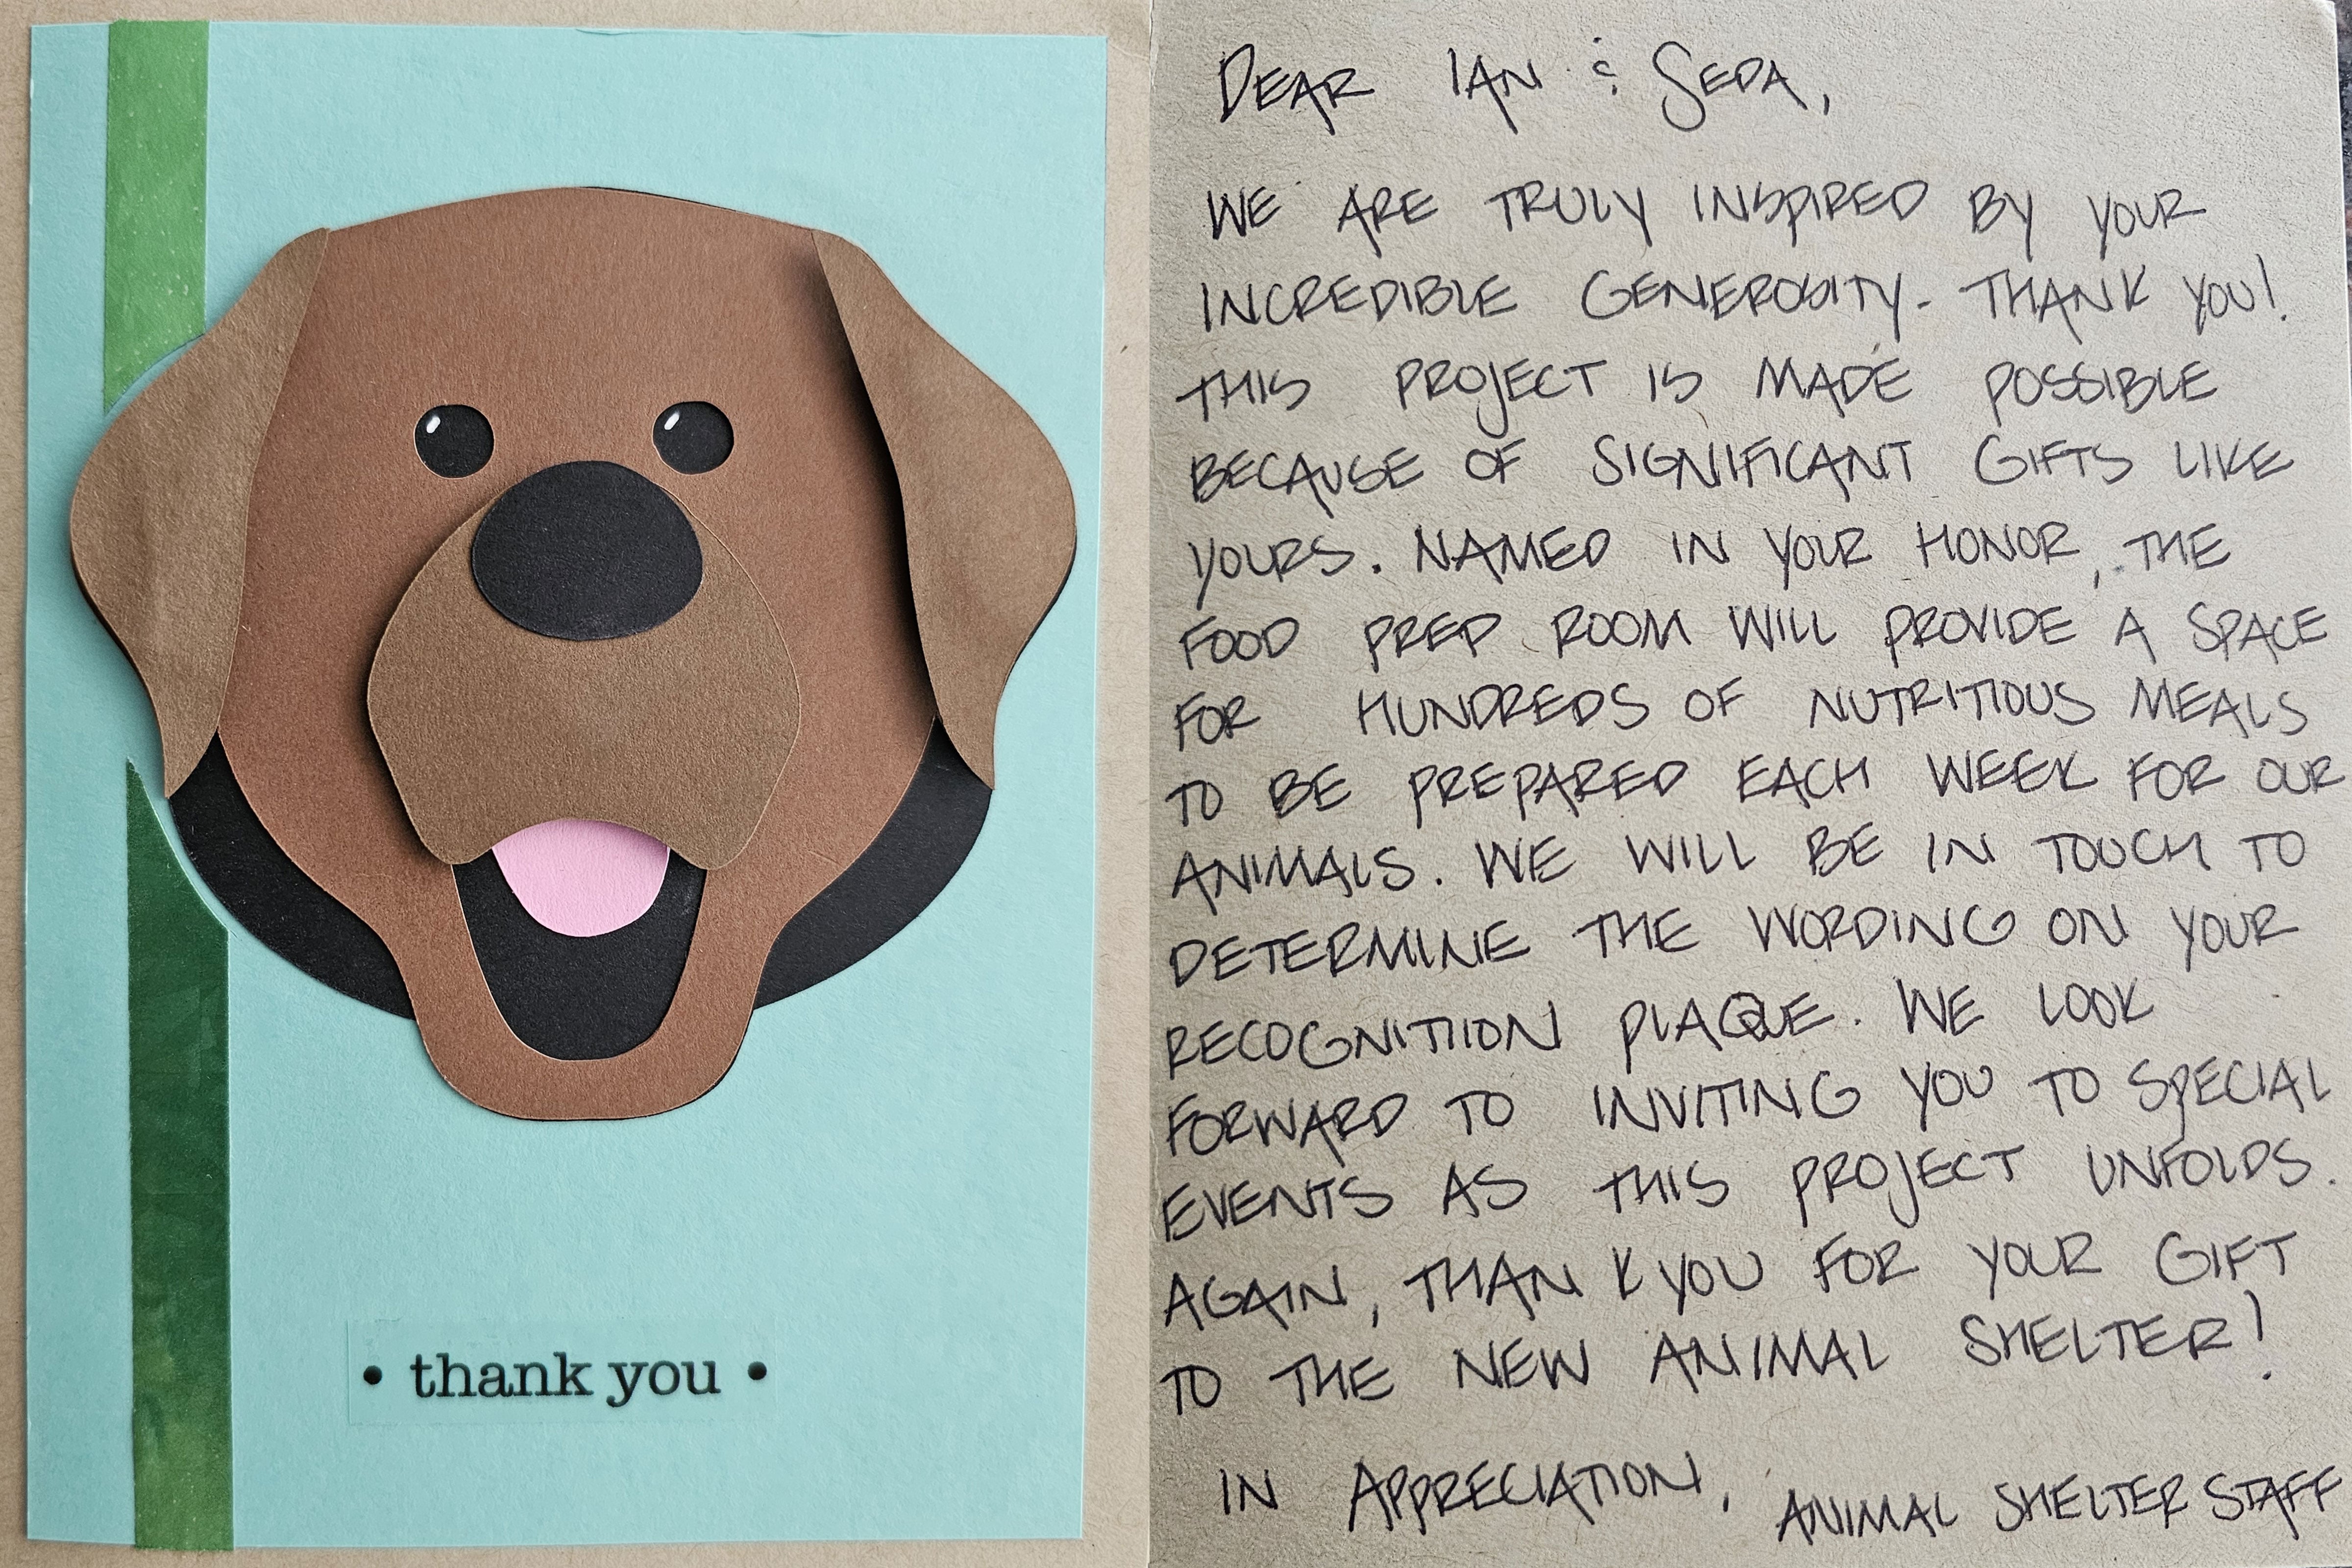 • thank you •
DEAR IAN & SEDA,
WE ARE TRULY INSPIRED BY YOUR
INCREDIBLE GENEROSITY - THANK YOU!
THIS PROJECT IS MADE POSSIBLE
BECAUSE OF SIGNIFICANT GIFTS LIKE
YOURS. NAMED IN YOUR HONOR, THE
FOOD PREP ROOM WILL PROVIDE A SPACE
FOR HUNDREDS OF NUTRITIOUS MEALS
TO BE PREPARED EACH WEEK FOR OUR
ANIMALS. WE WILL BE IN TOUCH TO
DETERMINE THE WORDING ON YOUR
RECOGNITION PLAQUE. WE LOOK
FORWARD TO INVITING YOU TO SPECIAL
EVENTS AS THIS PROJECT UNFOLDS.
AGAIN, THANK YOU FOR YOUR GIFT
TO THE NEW ANIMAL SHELTER!
IN APPRECIATION, ANIMAL SHELTER STAFF